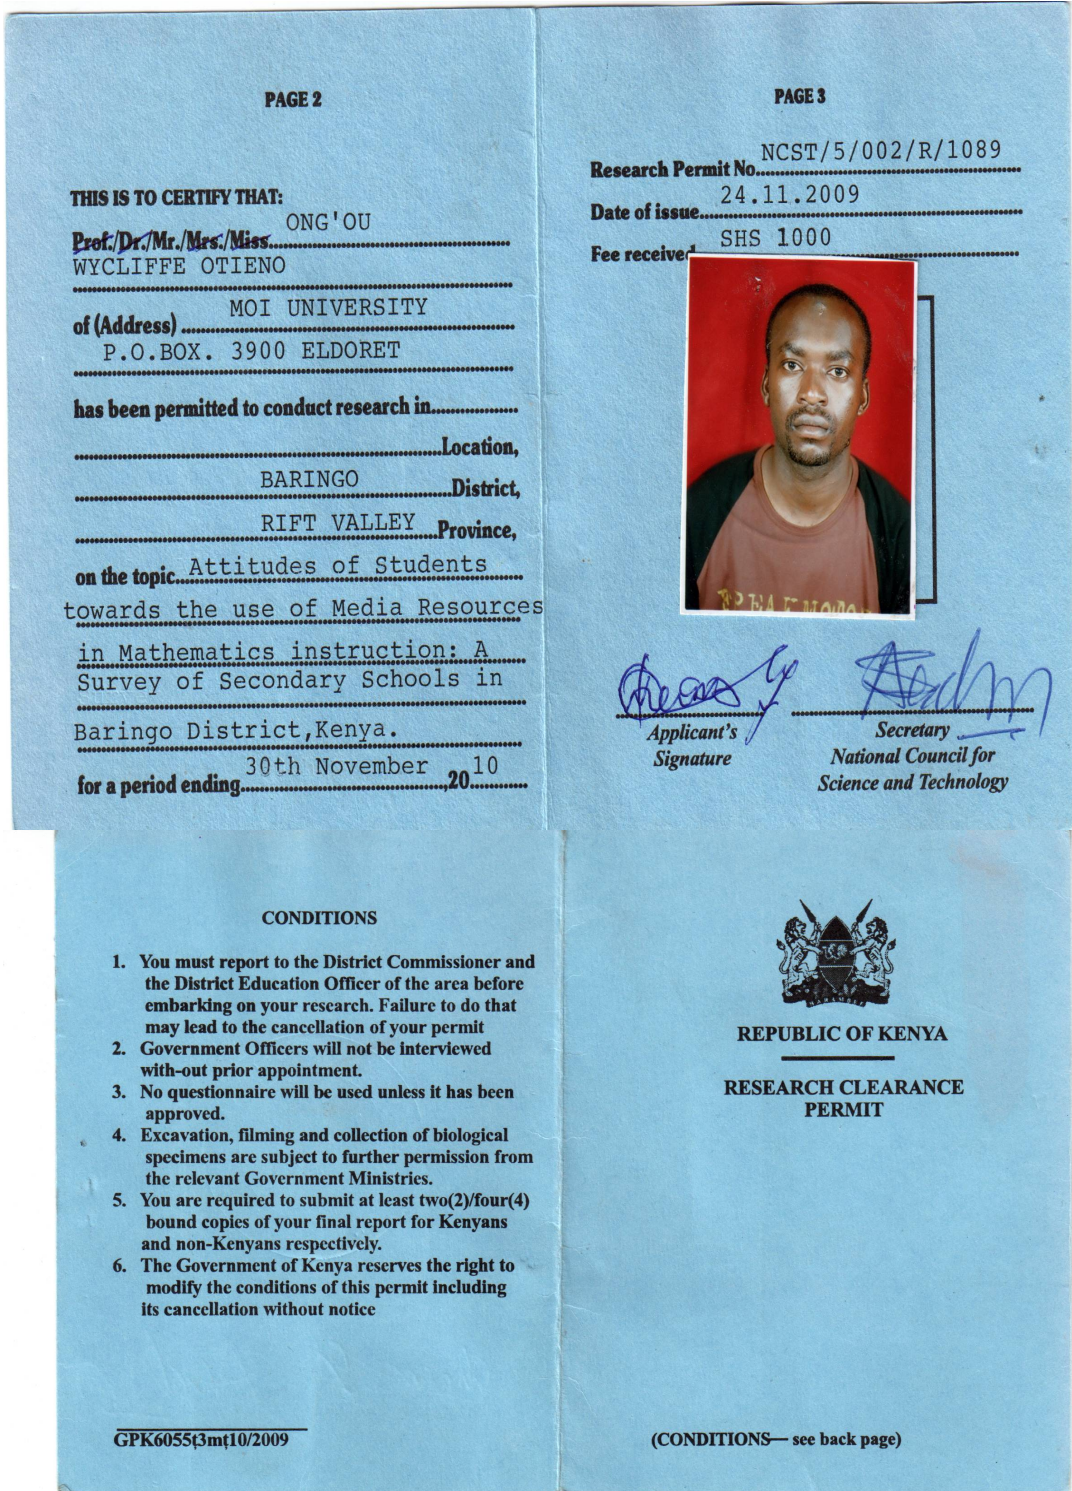 PAGE 2
THIS IS TO CERTIFY THAT:
Prof./Dr./Mr./Mrs./Miss. ONG'OU
WYCLIFFE OTIENO
of (Address) MOI UNIVERSITY
P.O.BOX. 3900 ELDORET
has been permitted to conduct research in
Location,
BARINGO District,
RIFT VALLEY Province,
on the topic Attitudes of Students
towards the use of Media Resources
in Mathematics instruction: A
Survey of Secondary Schools in
Baringo District,Kenya.
for a period ending 30th November ,20 10
PAGE 3
Research Permit No. NCST/5/002/R/1089
Date of issue 24.11.2009
Fee received SHS 1000
Applicant's
Signature
Secretary
National Council for
Science and Technology
CONDITIONS
1. You must report to the District Commissioner and
the District Education Officer of the area before
embarking on your research. Failure to do that
may lead to the cancellation of your permit
2. Government Officers will not be interviewed
with-out prior appointment.
3. No questionnaire will be used unless it has been
approved.
4. Excavation, filming and collection of biological
specimens are subject to further permission from
the relevant Government Ministries.
5. You are required to submit at least two(2)/four(4)
bound copies of your final report for Kenyans
and non-Kenyans respectively.
6. The Government of Kenya reserves the right to
modify the conditions of this permit including
its cancellation without notice
GPK6055t3mt10/2009
REPUBLIC OF KENYA
RESEARCH CLEARANCE
PERMIT
(CONDITIONS— see back page)